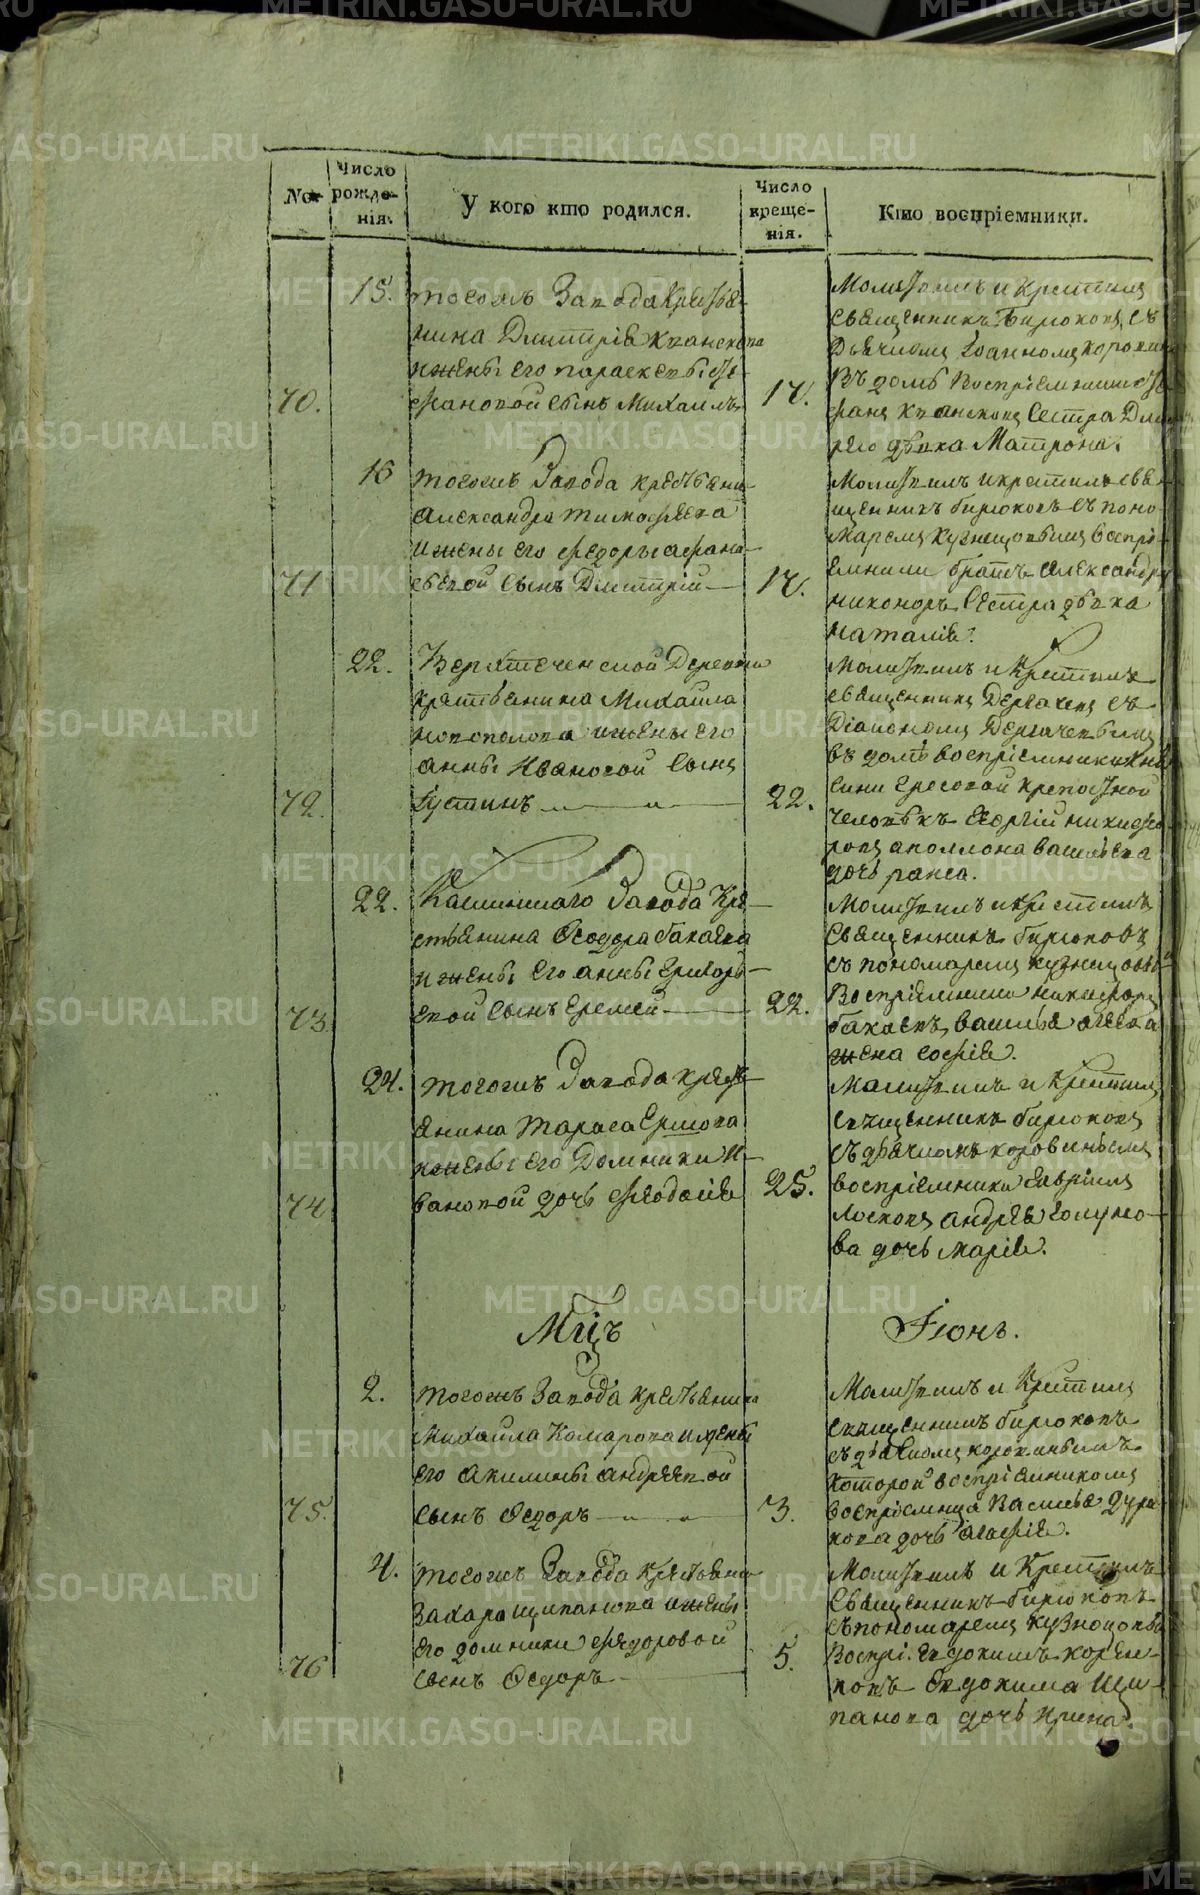 №
Число рожде-
нія.
У кого кто родился.
Число креще-
нія.
Кто воспріемники.
15.
тогожъ Завода Крестья-
нина Дмитрія
ижены его параскевы Сте-
70.
фановой сынъ Михаилъ
17.
Молитвилъ и Крестилъ
священникъ Бирюковъ съ
Дьячкомъ Іоанномъ
Въ домѣ Воспріемники
Сестра
дѣвка Матрона.
16
тогожъ Завода крестьяни
Александра тимофѣева
ижены его федоры афана-
71
сьевой сынъ Дмитрій
17.
Молитвилъ икрестилъ свя-
щенникъ бирюковъ съ поно-
маремъ кузнецовымъ воспрі-
емники братъ александръ
никоноръ Сестра дѣвка
наталія.
22.
Деревни
крестьянина Михаила
ижены его
анны Ивановой сынъ
72.
Іустинъ
22.
Молитвилъ и Крестилъ
священникъ Дергачевъ съ
Діакономъ Дергачевымъ
въ домѣ воспріемники
крепостной
человѣкъ Георгій
аполлона васильева
дочь раиса.
22.
Каслинскаго Завода Кре-
стьянина Ѳеодора бакаева
и жены его анны Григорь-
73.
евой сынъ Еремей
22.
Молитвилъ икрестилъ
Священникъ бирюковъ
съ пономаремъ кузнецовы
Воспріемники никифоръ
бакаевъ, василья агѣева
жена софія.
24.
тогожъ Завода крестья
янина Тараса Ершова
ижены его Домники И-
74
вановой дочь феодосія
25.
Молитвилъ и Крестилъ
священникъ бирюковъ
съ дьячкомъ коровинымъ
воспріемники Гавріилъ
Лосковъ андрея голуно-
ва дочь марія.
Мцъ
Іюнь.
2.
тогожъ Завода крестьянина
Михаила Комарова ижены
его акилины андреевой
75.
сынъ Ѳедоръ
3.
Молитвилъ и Крестилъ
священникъ бирюковъ
съ дьячкомъ коровинымъ
которой воспріемникомъ
воспріемница Василья дура-
кова дочь агафія.
4.
тогожъ Завода крестьяни
Захара щипанова ижены
его домники федоровой
76
сынъ Ѳедоръ
5.
Молитвилъ и Крестилъ
Священникъ бирюковъ
съ пономаремъ кузнецовы
Воспрі. Евдокимъ корел-
ковъ Евдокима Щи-
панова дочь ирина.
METRIKI.GASO-URAL.RU